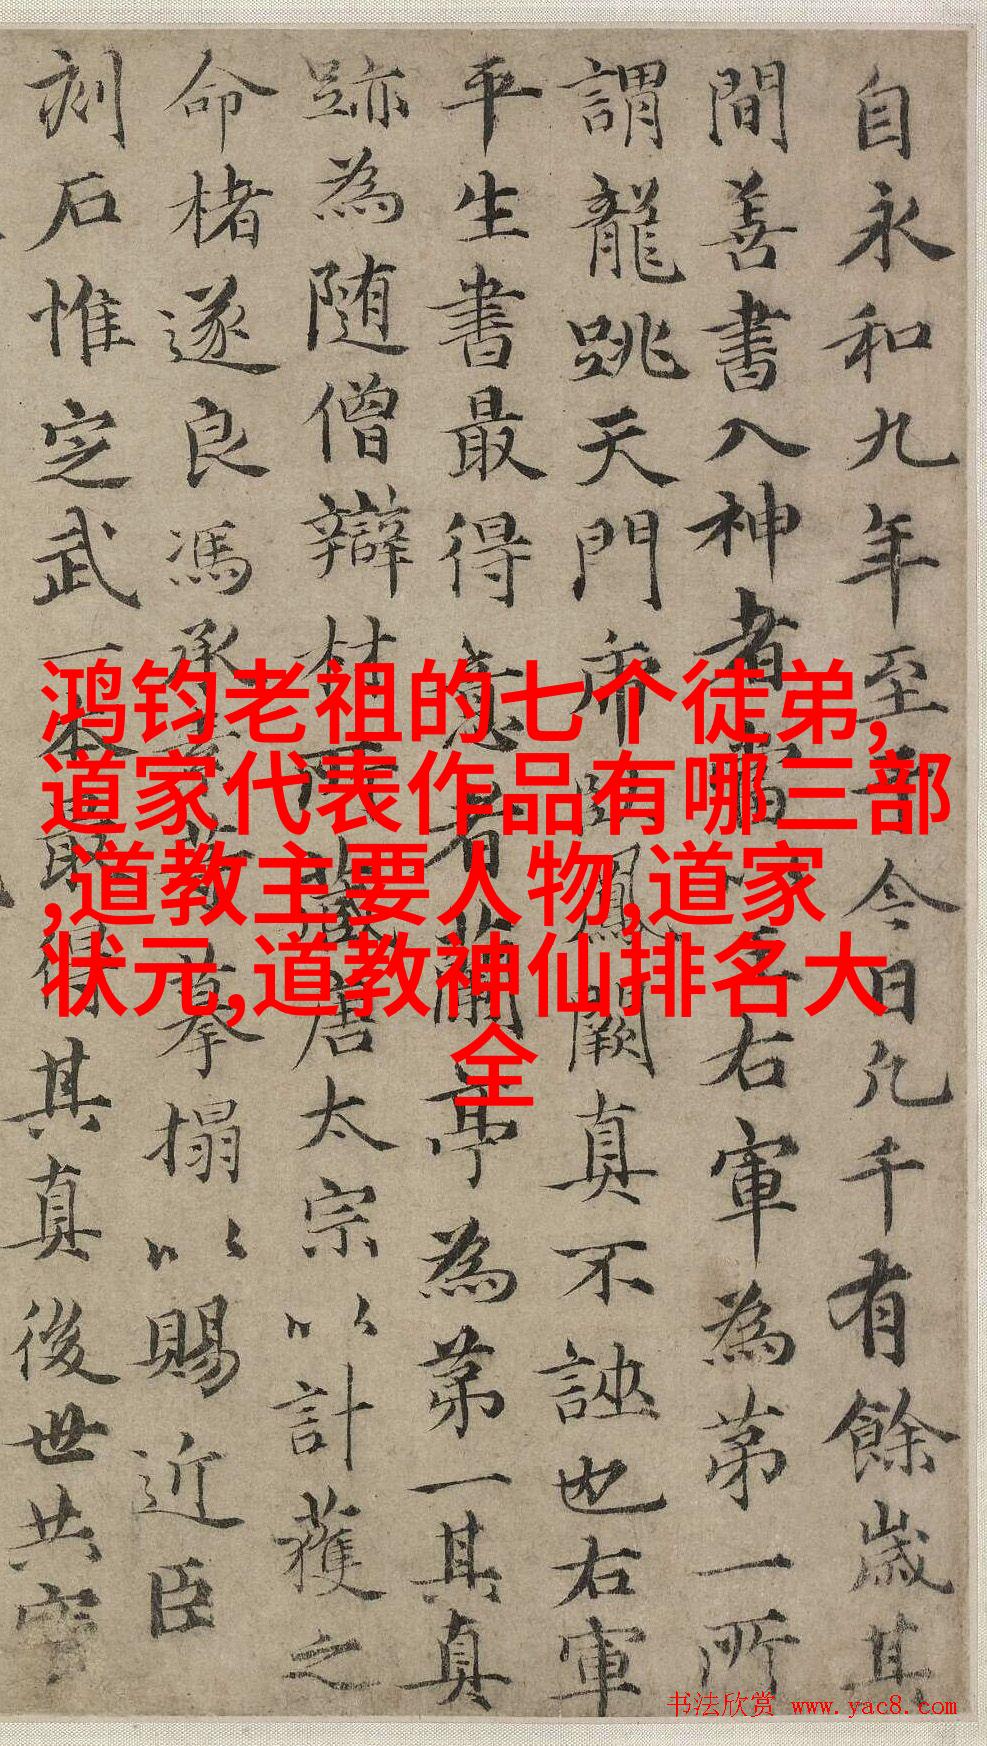 自永和九年至今日凡千有餘歲其
間善書入神者當右軍為第一所
謂龍跳天門虎臥鳳闕真不誣也右軍
平生書最得意者蘭亭為第一其真
跡為随僧辯材所藏唐太宗以計獲之
命楮遂良馮承素等摹搨以賜近臣
刻石惟定武一本最得其真後世共寳
鸿钧老祖的七个徒弟,
道家代表作品有哪三部
,道教主要人物,道家
状元,道教神仙排名大
全
书法欣赏 www.yac8.com